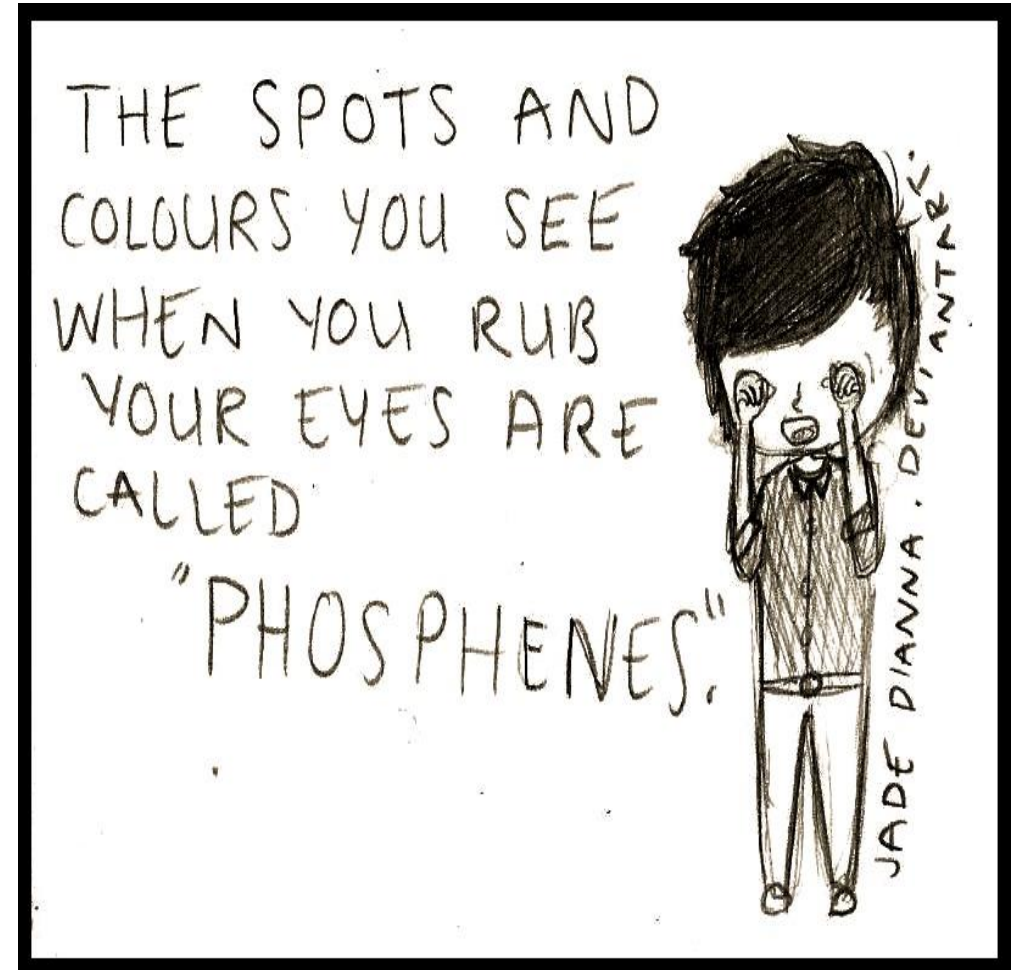 THE SPOTS AND
COLOURS YOU SEE
WHEN YOU RUB
YOUR EYES ARE
CALLED
"PHOSPHENES."
JADE DIANNA. DEVIANTART.